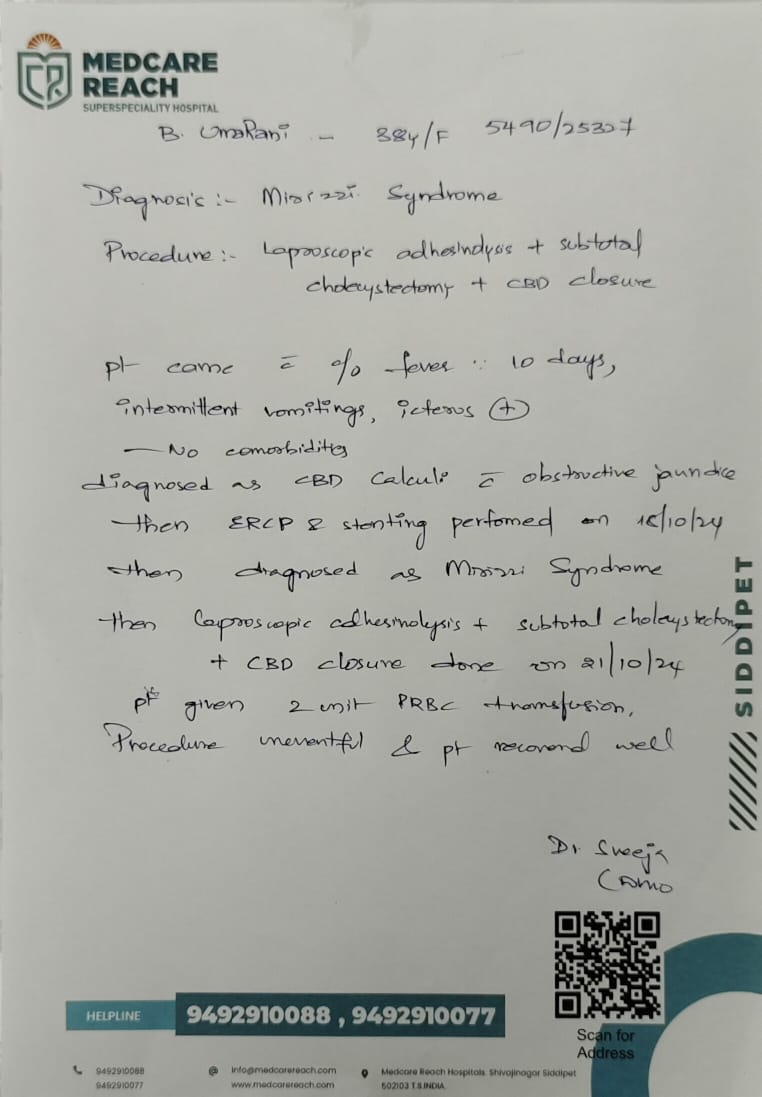 MEDCARE
REACH
SUPERSPECIALITY HOSPITAL
B. UmaRani - 38y/F 5490/25327
Diagnosis :- Mirizzi Syndrome
Procedure :- Laproscopic adhesindysis + subtotal
cholecystectomy + CBD closure
pt came c̄ c/o fever :: 10 days,
intermittent vomitings, icterus (+)
- No comorbidities
diagnosed as CBD Calculi c̄ obstructive jaundice
then ERCP & stenting perfomed on /10/24
then diagnosed as Mirizzi Syndrome
then laproscopic adhesinolysis + subtotal choleystectomy
+ CBD closure done on 21/10/24
pt given 2 unit PRBC transfusion,
Procedure uneventful & pt recovered well
Dr Sreeja
SIDDIPET
HELPLINE 9492910088 , 9492910077
Scan for
Address
9492910088
9492910077
info@medcarereach.com
www.medcarereach.com
Medcare Reach Hospitals. Shivajinagar Siddipet
502103 T.S.INDIA.